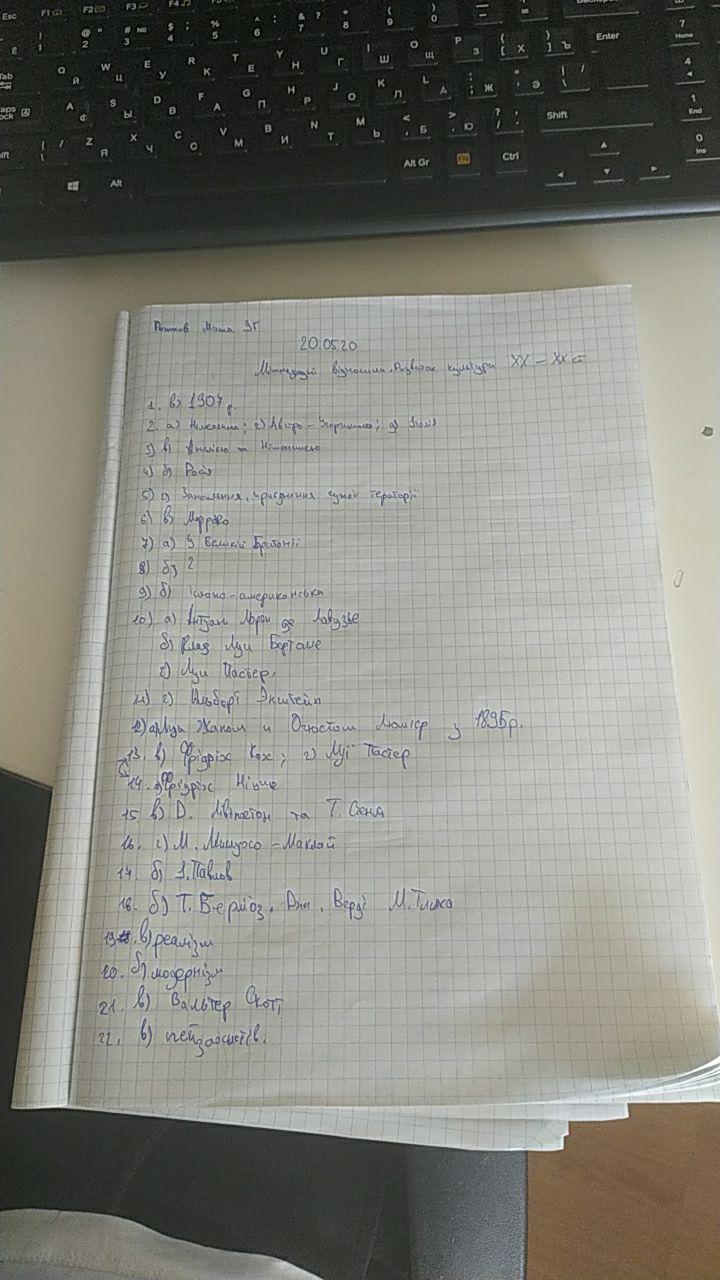 Esc F1 F2 F3 F4
@ " 2 # № 3 $ ; 4 % 5 ^ : 6 & ? 7 * 8 ( 9 ) 0
Q Й W Ц E У R К T Е Y Н U Г I Ш O Щ P З { [ Х } ] Ъ Enter 7 Home
A S Ы D В F А G П H Р J О K Л L Д : ; Ж " ' Э | \ 4
Z Я X Ч C С V М B И N Т M Ь < , Б > . Ю ? / Shift 1 End
Alt Alt Gr FN Ctrl 0 Ins
Маша 9Г
20.05.20
відносини. Розвиток культури XX – XX ст
1. в) 1907 р.
2. а) Німеччина; г) Австро-Угорщина; д) Італія
3) в) Англією та Німеччиною
4) б) Росія
5) Захоплення, приєднання чужої території
6) в) Марокко
7) а) У Великій Британії
8) б) 2
9) б) Іспано-американська
10) а) Антуан Лоран де Лавуазье
б) Клод Луи Бертоле
г) Луи Пастер.
11) г) Альберт Энштейн
12) а) Луи Жаном и Огюстом Люміер у 1895р.
13. в) Фрідріх Кох; г) Луї Пастер
14. Фрідріх Ніцше
15. в) D. Лівінгстон та Т. Стенлі
16. г) М. Миклухо-Маклай
17. б) І. Павлов
18. б) Г. Берліоз, Дж. Верді М. Глинка
19. в) реалізм
20. б) модернізм
21. в) Вальтер Скотт
22. в) пейзажистів.